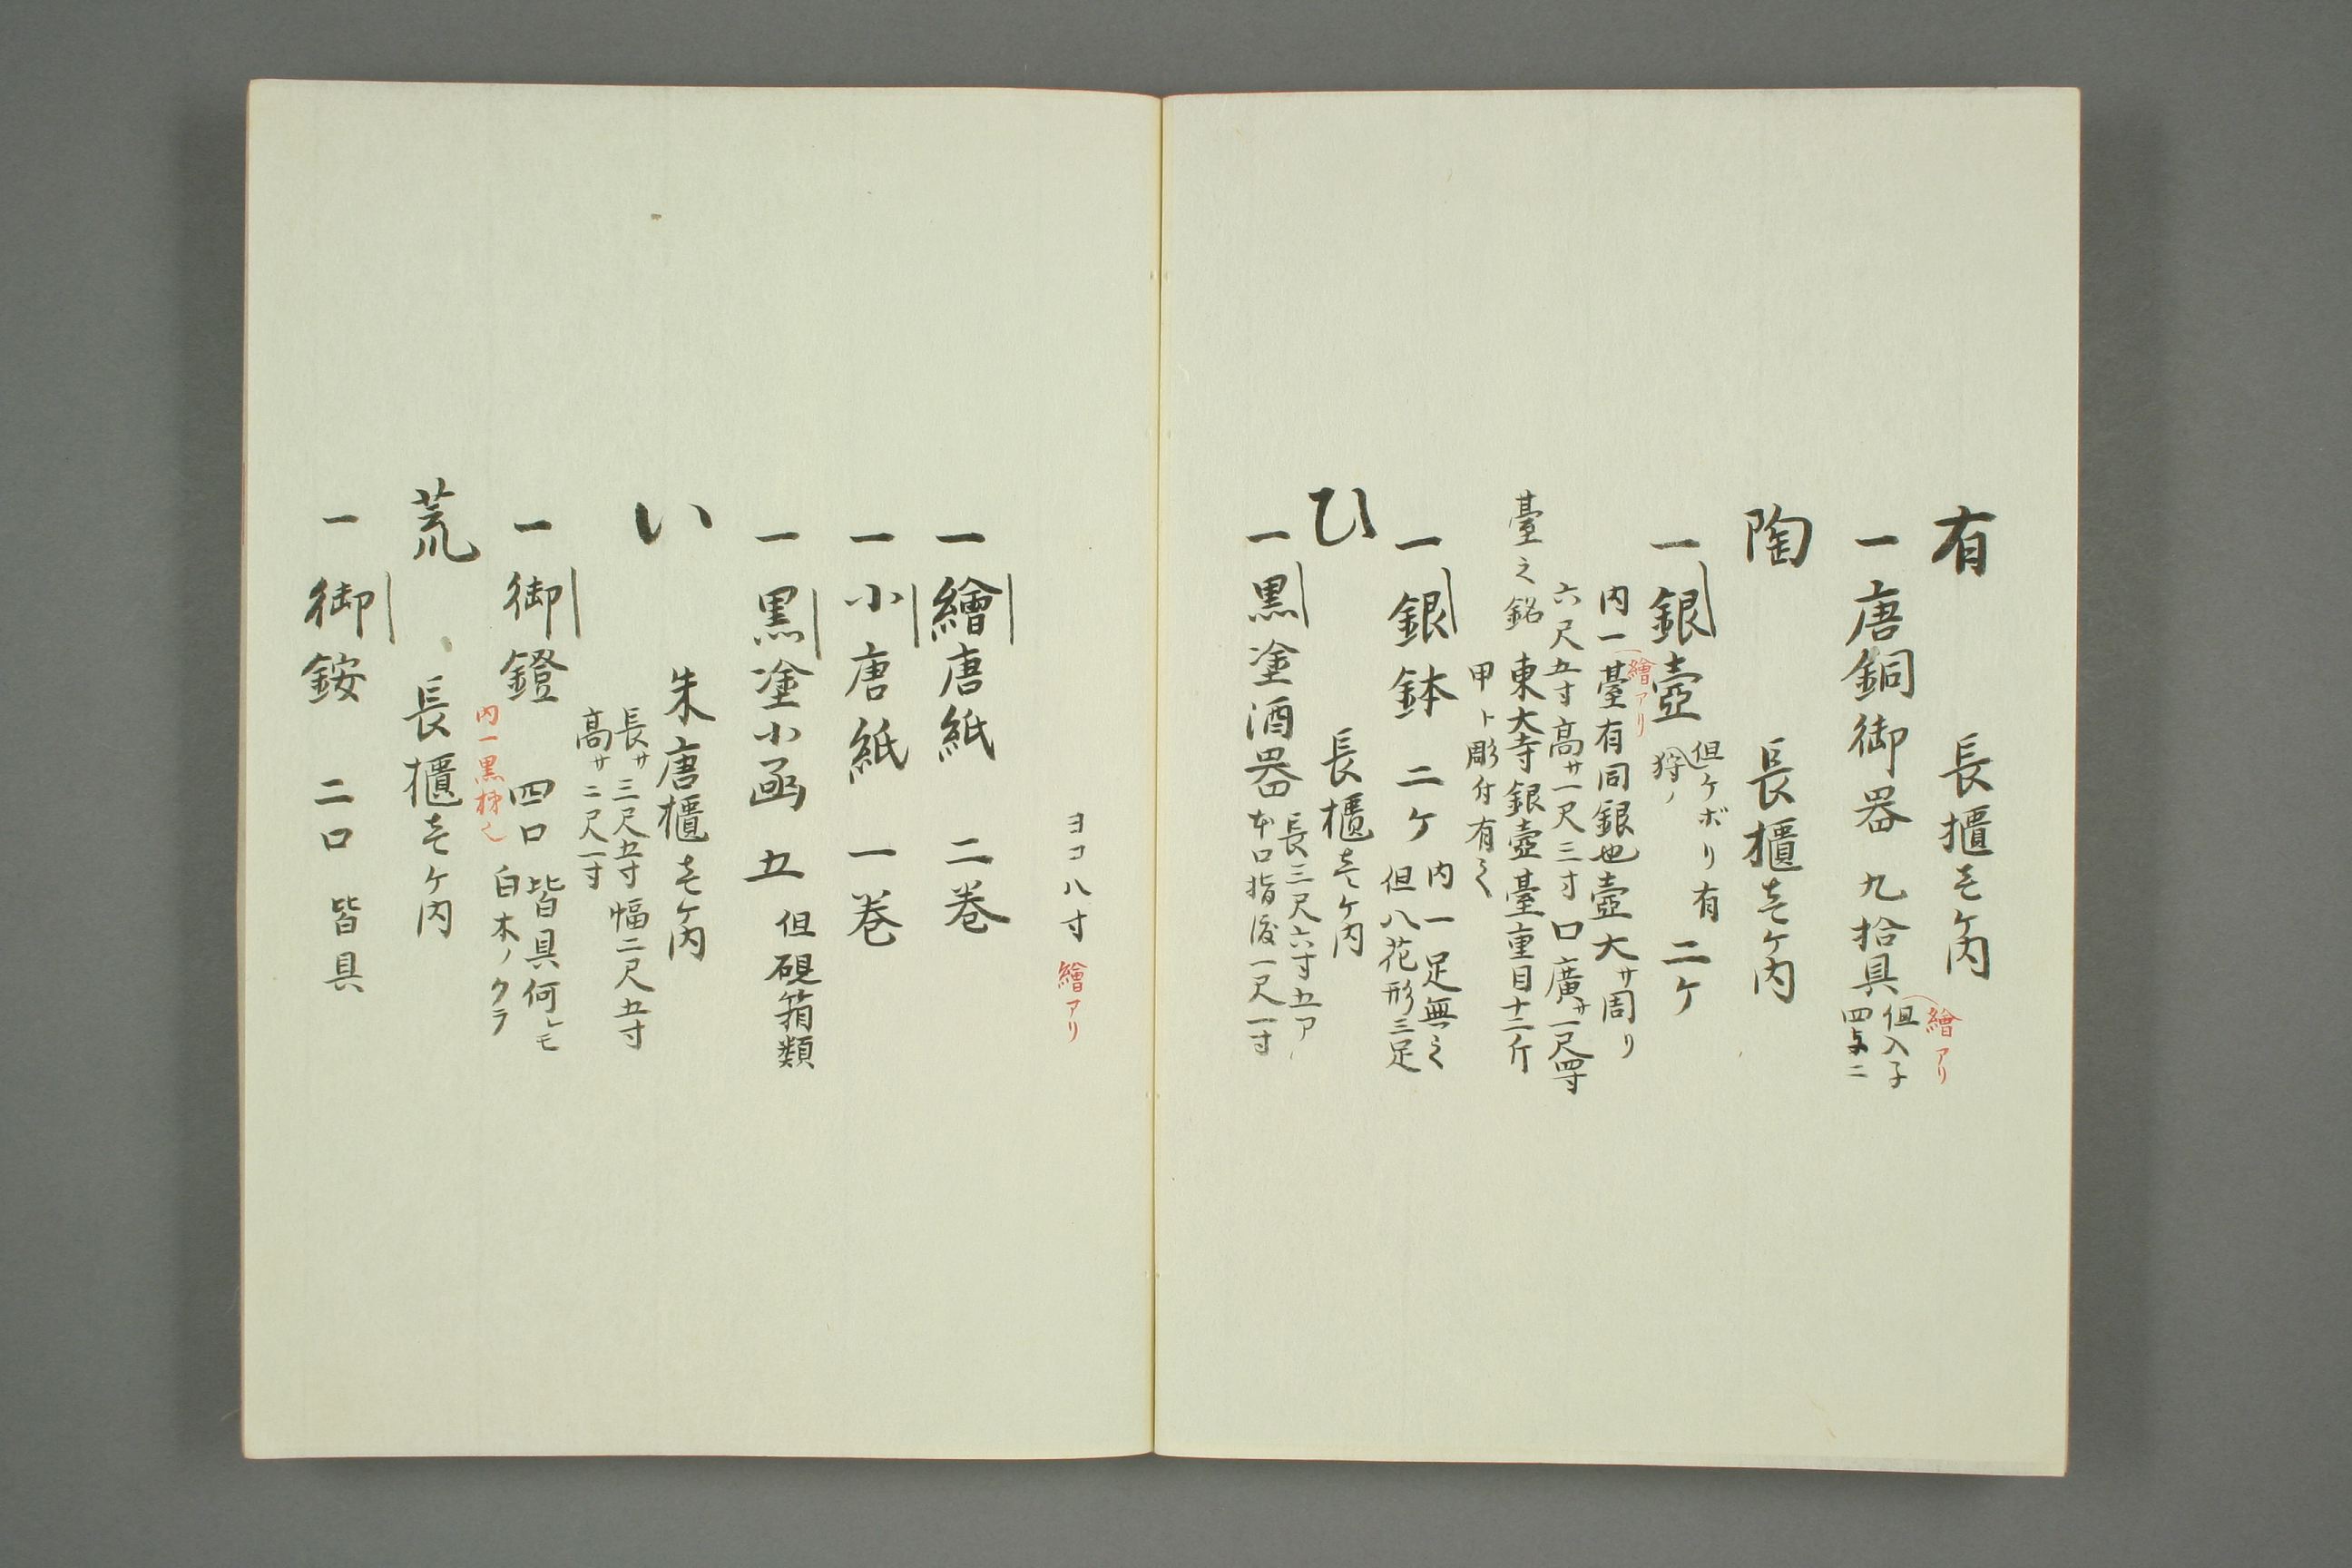 有　長櫃壱ケ内
一唐銅御器　九拾具　但入子
四与ニ
繪アリ
陶　長櫃壱ケ内
一銀壺　但ケボリ有
狩ノ
二ケ
繪アリ
内一臺有同銀也壺大サ周リ
六尺五寸高サ一尺三寸口廣サ一尺四寸
臺之銘　東大寺銀壺臺重目十二斤
甲ト彫付有之
一銀鉢　二ケ　内一足無之
但八花形三足
ひ　長櫃壱ケ内
一黒塗酒器　長三尺六寸五ア
本口指渡一尺一寸
ヨコ八寸　繪アリ
一繪唐紙　二巻
一小唐紙　一巻
一黒塗小函　五　但硯箱類
い　朱唐櫃壱ケ内
長サ三尺五寸幅二尺五寸
高サ二尺一寸
一御鐙　四口　皆具何レモ
白木ノクラ
内一黒柿之
荒　長櫃壱ケ内
一御銨　二口　皆具